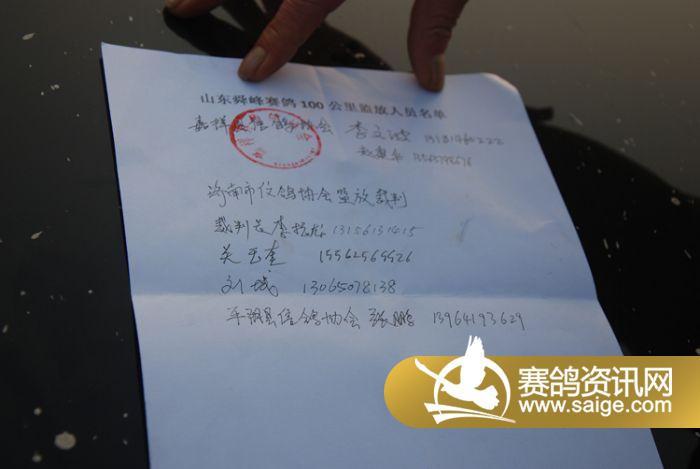 山东舜峰赛鸽100公里监放人员名单
嘉祥县信鸽协会 李文
济南市信鸽协会监放裁判
裁判长李 13156131415
关玉奎 15562565526
刘城 13065078138
平阴县信鸽协会 张鹏 13964193629
赛鸽资讯网
www.saige.com